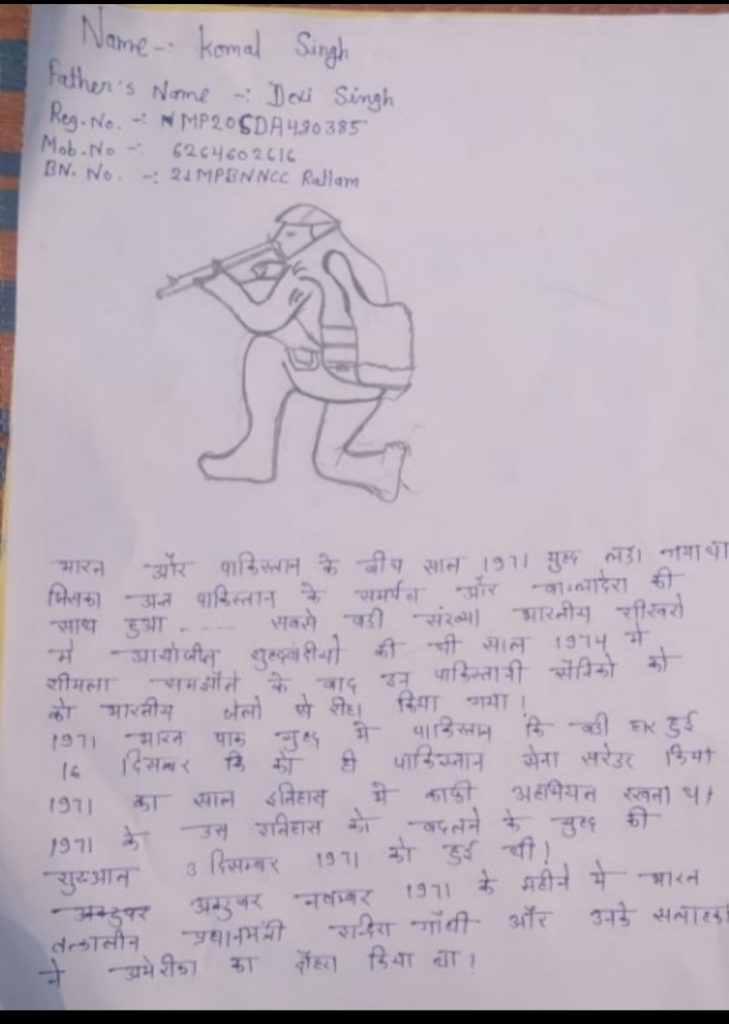 Name -: Komal Singh
Father's Name -: Devi Singh
Reg. No. -: MP20SDA490385
Mob. No -: 6264602616
BN. No. -: 21MPBNNCC Ratlam
भारत और पाकिस्तान के बीच साल 1971 युद्ध लड़ा गया था
जिसका अन्त पाकिस्तान के समर्पन और बांग्लादेश की
साथ हुआ ..... सबसे बडी संख्या भारतीय
में युद्धबंदीयो की थी साल 1974 मे
शीमला समझौते के बाद उन पाकिस्तानी सैनिको को
को भारतीय जेलो से रीहा किया गया!
1971 भारत पाक युद्ध मे पाकिस्तान कि बडी हार हुई
16 दिसम्बर कि को ही पाकिस्तान सेना सरेंडर किया
1971 का साल इतिहास मे काफी अहमियत रखता था
1971 के उस इतिहास को बदलने के युद्ध की
शुरुआत 3 दिसम्बर 1971 को हुई थी!
अक्टुबर नवम्बर 1971 के महीने मे भारत
तत्कालीन प्रधानमंत्री इन्दिरा गाँधी और उनके सलाहका
ने अमेरीका का दौहरा किया था!